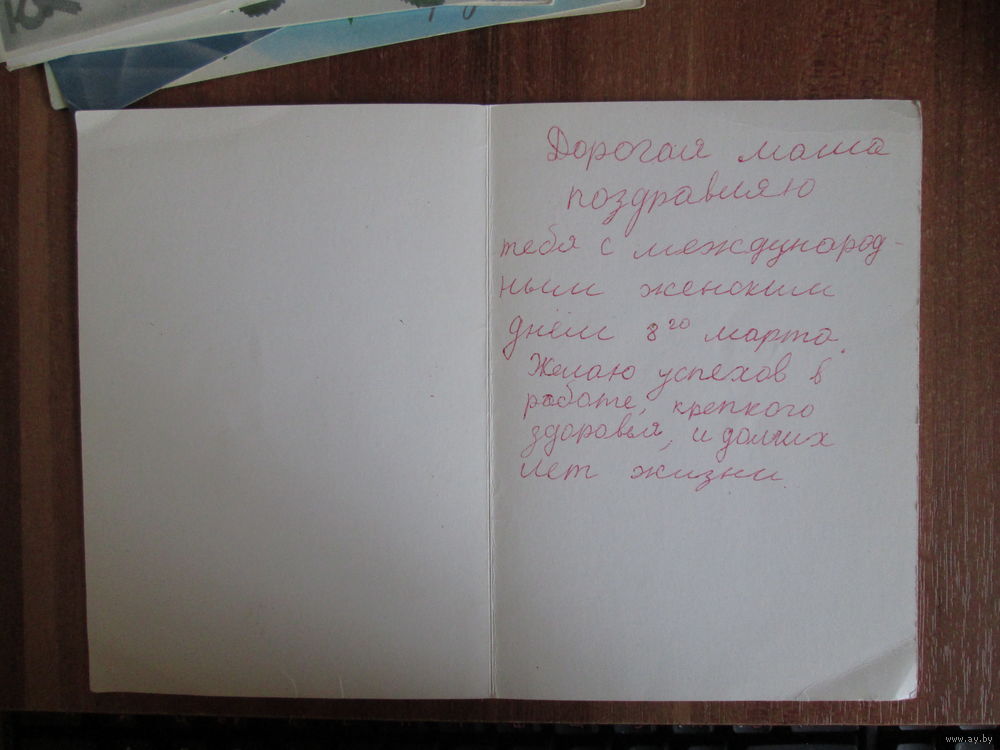 Дорогая маша
поздравляю
тебя с международ-
ным женским
днём 8го марта.
Желаю успехов в
работе, крепкого
здоровья, и долгих
лет жизни
www.ay.by